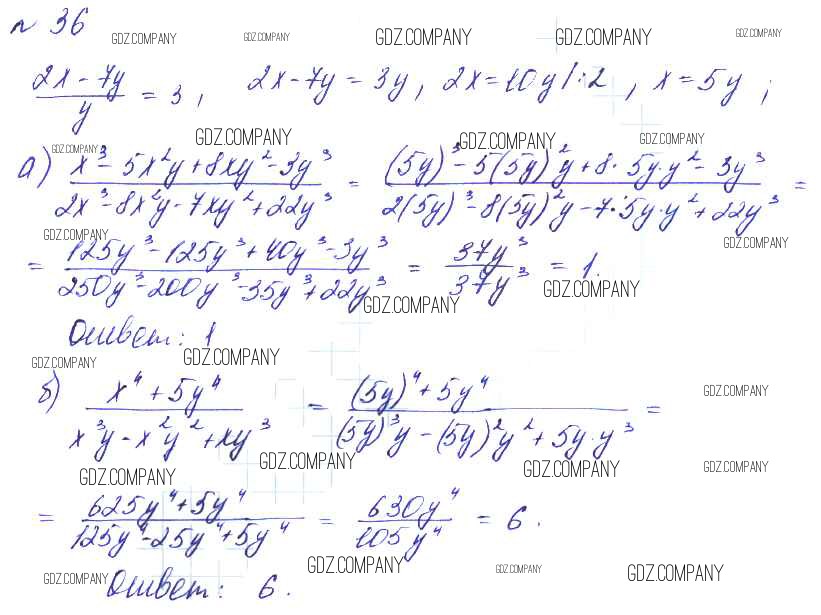 № 36
GDZ.COMPANY GDZ.COMPANY GDZ.COMPANY GDZ.COMPANY GDZ.COMPANY
(2x - 7y)/y = 3, 2x - 7y = 3y, 2x = 10y |:2, x = 5y;
GDZ.COMPANY GDZ.COMPANY GDZ.COMPANY GDZ.COMPANY
а) (x³ - 5x²y + 8xy² - 3y³)/(2x³ - 8x²y - 7xy² + 22y³) = ((5y)³ - 5(5y)²y + 8·5y·y² - 3y³)/(2(5y)³ - 8(5y)²y - 7·5y·y² + 22y³) =
GDZ.COMPANY GDZ.COMPANY
= (125y³ - 125y³ + 40y³ - 3y³)/(250y³ - 200y³ - 35y³ + 22y³) = 37y³/37y³ = 1.
GDZ.COMPANY GDZ.COMPANY
Ответ: 1
GDZ.COMPANY GDZ.COMPANY GDZ.COMPANY
б) (x⁴ + 5y⁴)/(x³y - x²y² + xy³) = ((5y)⁴ + 5y⁴)/((5y)³y - (5y)²y² + 5y·y³) =
GDZ.COMPANY GDZ.COMPANY GDZ.COMPANY GDZ.COMPANY
= (625y⁴ + 5y⁴)/(125y⁴ - 25y⁴ + 5y⁴) = 630y⁴/105y⁴ = 6.
GDZ.COMPANY GDZ.COMPANY GDZ.COMPANY GDZ.COMPANY
Ответ: 6.